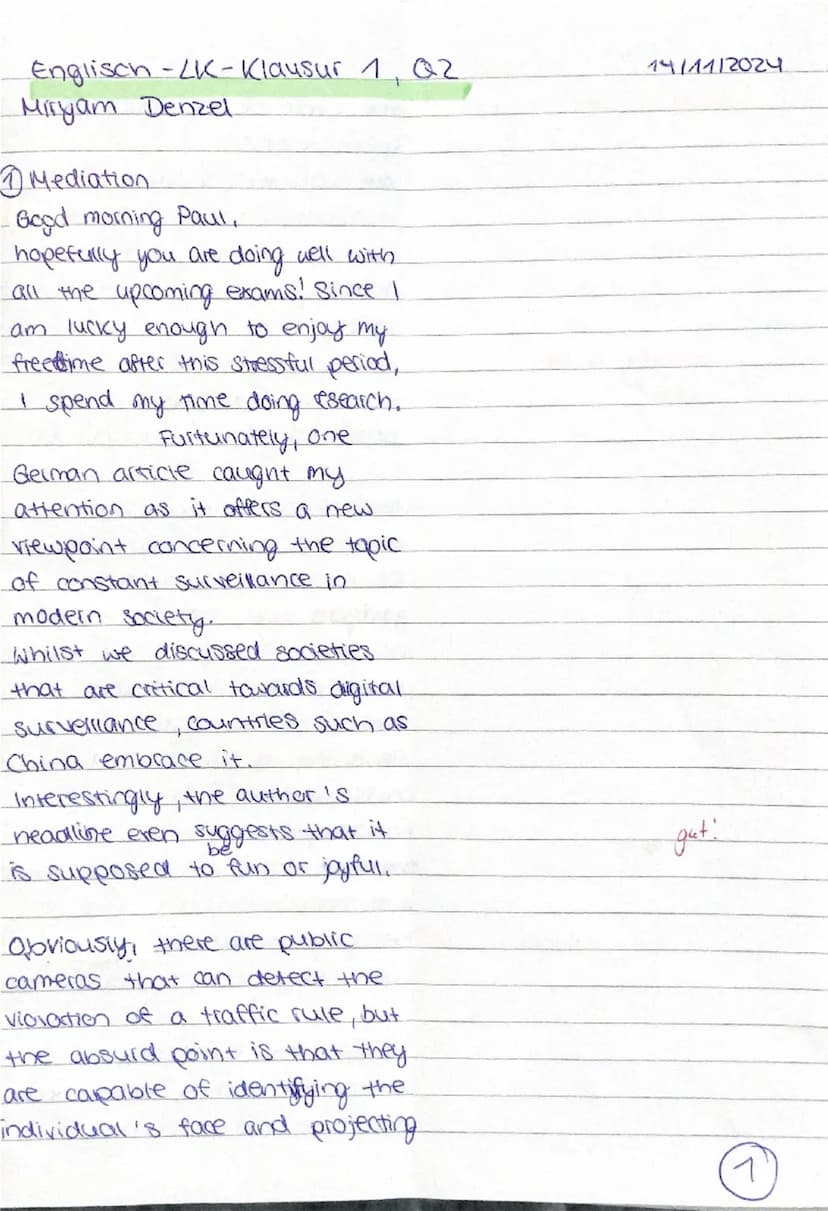 Englisch - LK - Klausur 1, Q2
14/11/2024
Miryam Denzel
① Mediation
Good morning Paul,
hopefully you are doing well with
all the upcoming exams! Since I
am lucky enough to enjoy my
freetime after this stressful period,
I spend my time doing research.
Furtunately, one
German article caught my
attention as it offers a new
viewpoint concerning the topic
of constant surveillance in
modern society.
Whilst we discussed societies
that are critical towards digital
surveillance, countries such as
China embrace it.
Interestingly, the author's
headline even suggests that it
gut!
is supposed to be fun or joyful.
Obviously, there are public
cameras that can detect the
violation of a traffic rule, but
the absurd point is that they
are capable of identifying the
individual's face and projecting
1